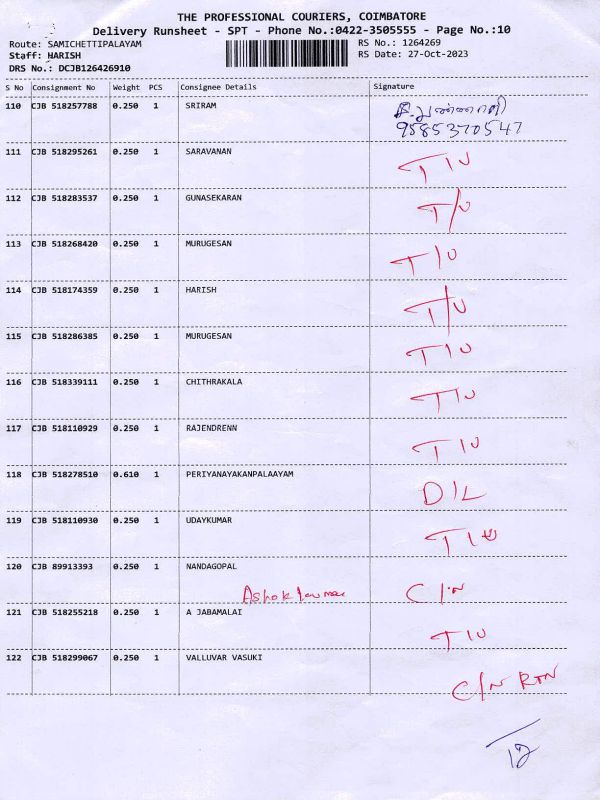 THE PROFESSIONAL COURIERS, COIMBATORE
Delivery Runsheet - SPT - Phone No.:0422-3505555 - Page No.:10
Route: SAMICHETTIPALAYAM RS No.: 1264269
Staff: HARISH RS Date: 27-Oct-2023
DRS No.: DCJB126426910
S No Consignment No Weight PCS Consignee Details Signature
110 CJB 518257788 0.250 1 SRIRAM
9585370547
111 CJB 518295261 0.250 1 SARAVANAN T/U
112 CJB 518283537 0.250 1 GUNASEKARAN T/U
113 CJB 518268420 0.250 1 MURUGESAN T/U
114 CJB 518174359 0.250 1 HARISH T/U
115 CJB 518286385 0.250 1 MURUGESAN T/U
116 CJB 518339111 0.250 1 CHITHRAKALA T/U
117 CJB 518110929 0.250 1 RAJENDRENN T/U
118 CJB 518278510 0.610 1 PERIYANAYAKANPALAAYAM D/L
119 CJB 518110930 0.250 1 UDAYKUMAR T/U
120 CJB 89913393 0.250 1 NANDAGOPAL
Ashok kumar C/N
121 CJB 518255218 0.250 1 A JABAMALAI T/U
122 CJB 518299067 0.250 1 VALLUVAR VASUKI C/N RTN
12